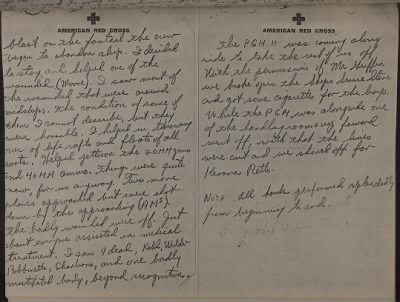 AMERICAN RED CROSS
blast on the fantail the crew
began to abandon ship. I decided
to stay and helped one of the
wounded (Moore). I saw most of
the wounded that were around
midships. The condition of some of
them I cannot describe, but they
were horrible. I helped in throwing
over of life rafts and floats of all
sorts. Helped jettison the 20MM guns
and 40MM ammo. Things were quite
now, for us anyway. Two more
planes approached but were shot
down by the approaching
the badly wounded were off. Just
about everyone assisted in medical
treatment. I saw 4 dead,
and one badly
mutilated body, beyond recognition.
AMERICAN RED CROSS
the PGM 11 was coming along
side to take the rest of us off.
With the permission of Mr. Griffin
we broke open the Ships Service Store
and got some cigarettes for the boys.
While the PGM was alongside one
of the handling rooms forward
went off, with that the lines
were cut and we shoved off for
Kerama Retto.
Note All hands performed splendidly
from beginning to end.